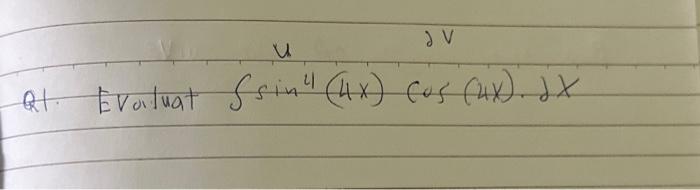 u dv
Q1. Evaluat ∫sin⁴(4x) cos(4x).dx